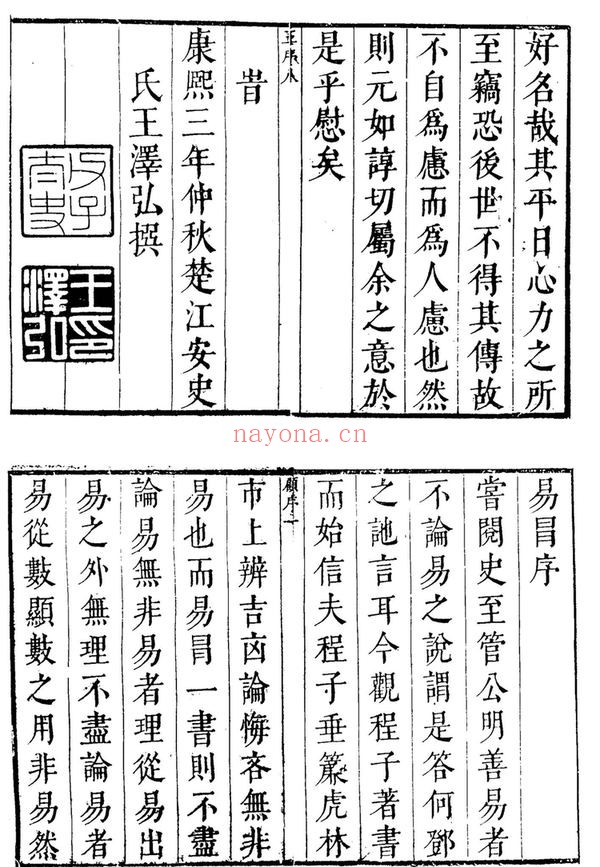 好名哉其平日心力之所
至竊恐後世不得其傳故
不自爲慮而爲人慮也然
則元如諄切屬余之意於
是乎慰矣
王序八
旹
康熙三年仲秋楚江安史
氏王澤弘撰
太史
王印澤弘
nayona.cn
易冒序
嘗閱史至管公明善易者
不論易之說謂是答何鄧
之訑言耳今觀程子著書
而始信夫程子垂簾虎林
顧序一
市上辨吉凶論悔吝無非
易也而易冒一書則不盡
論易無非易者理從易出
易之外無理不盡論易者
易從數顯數之用非易然